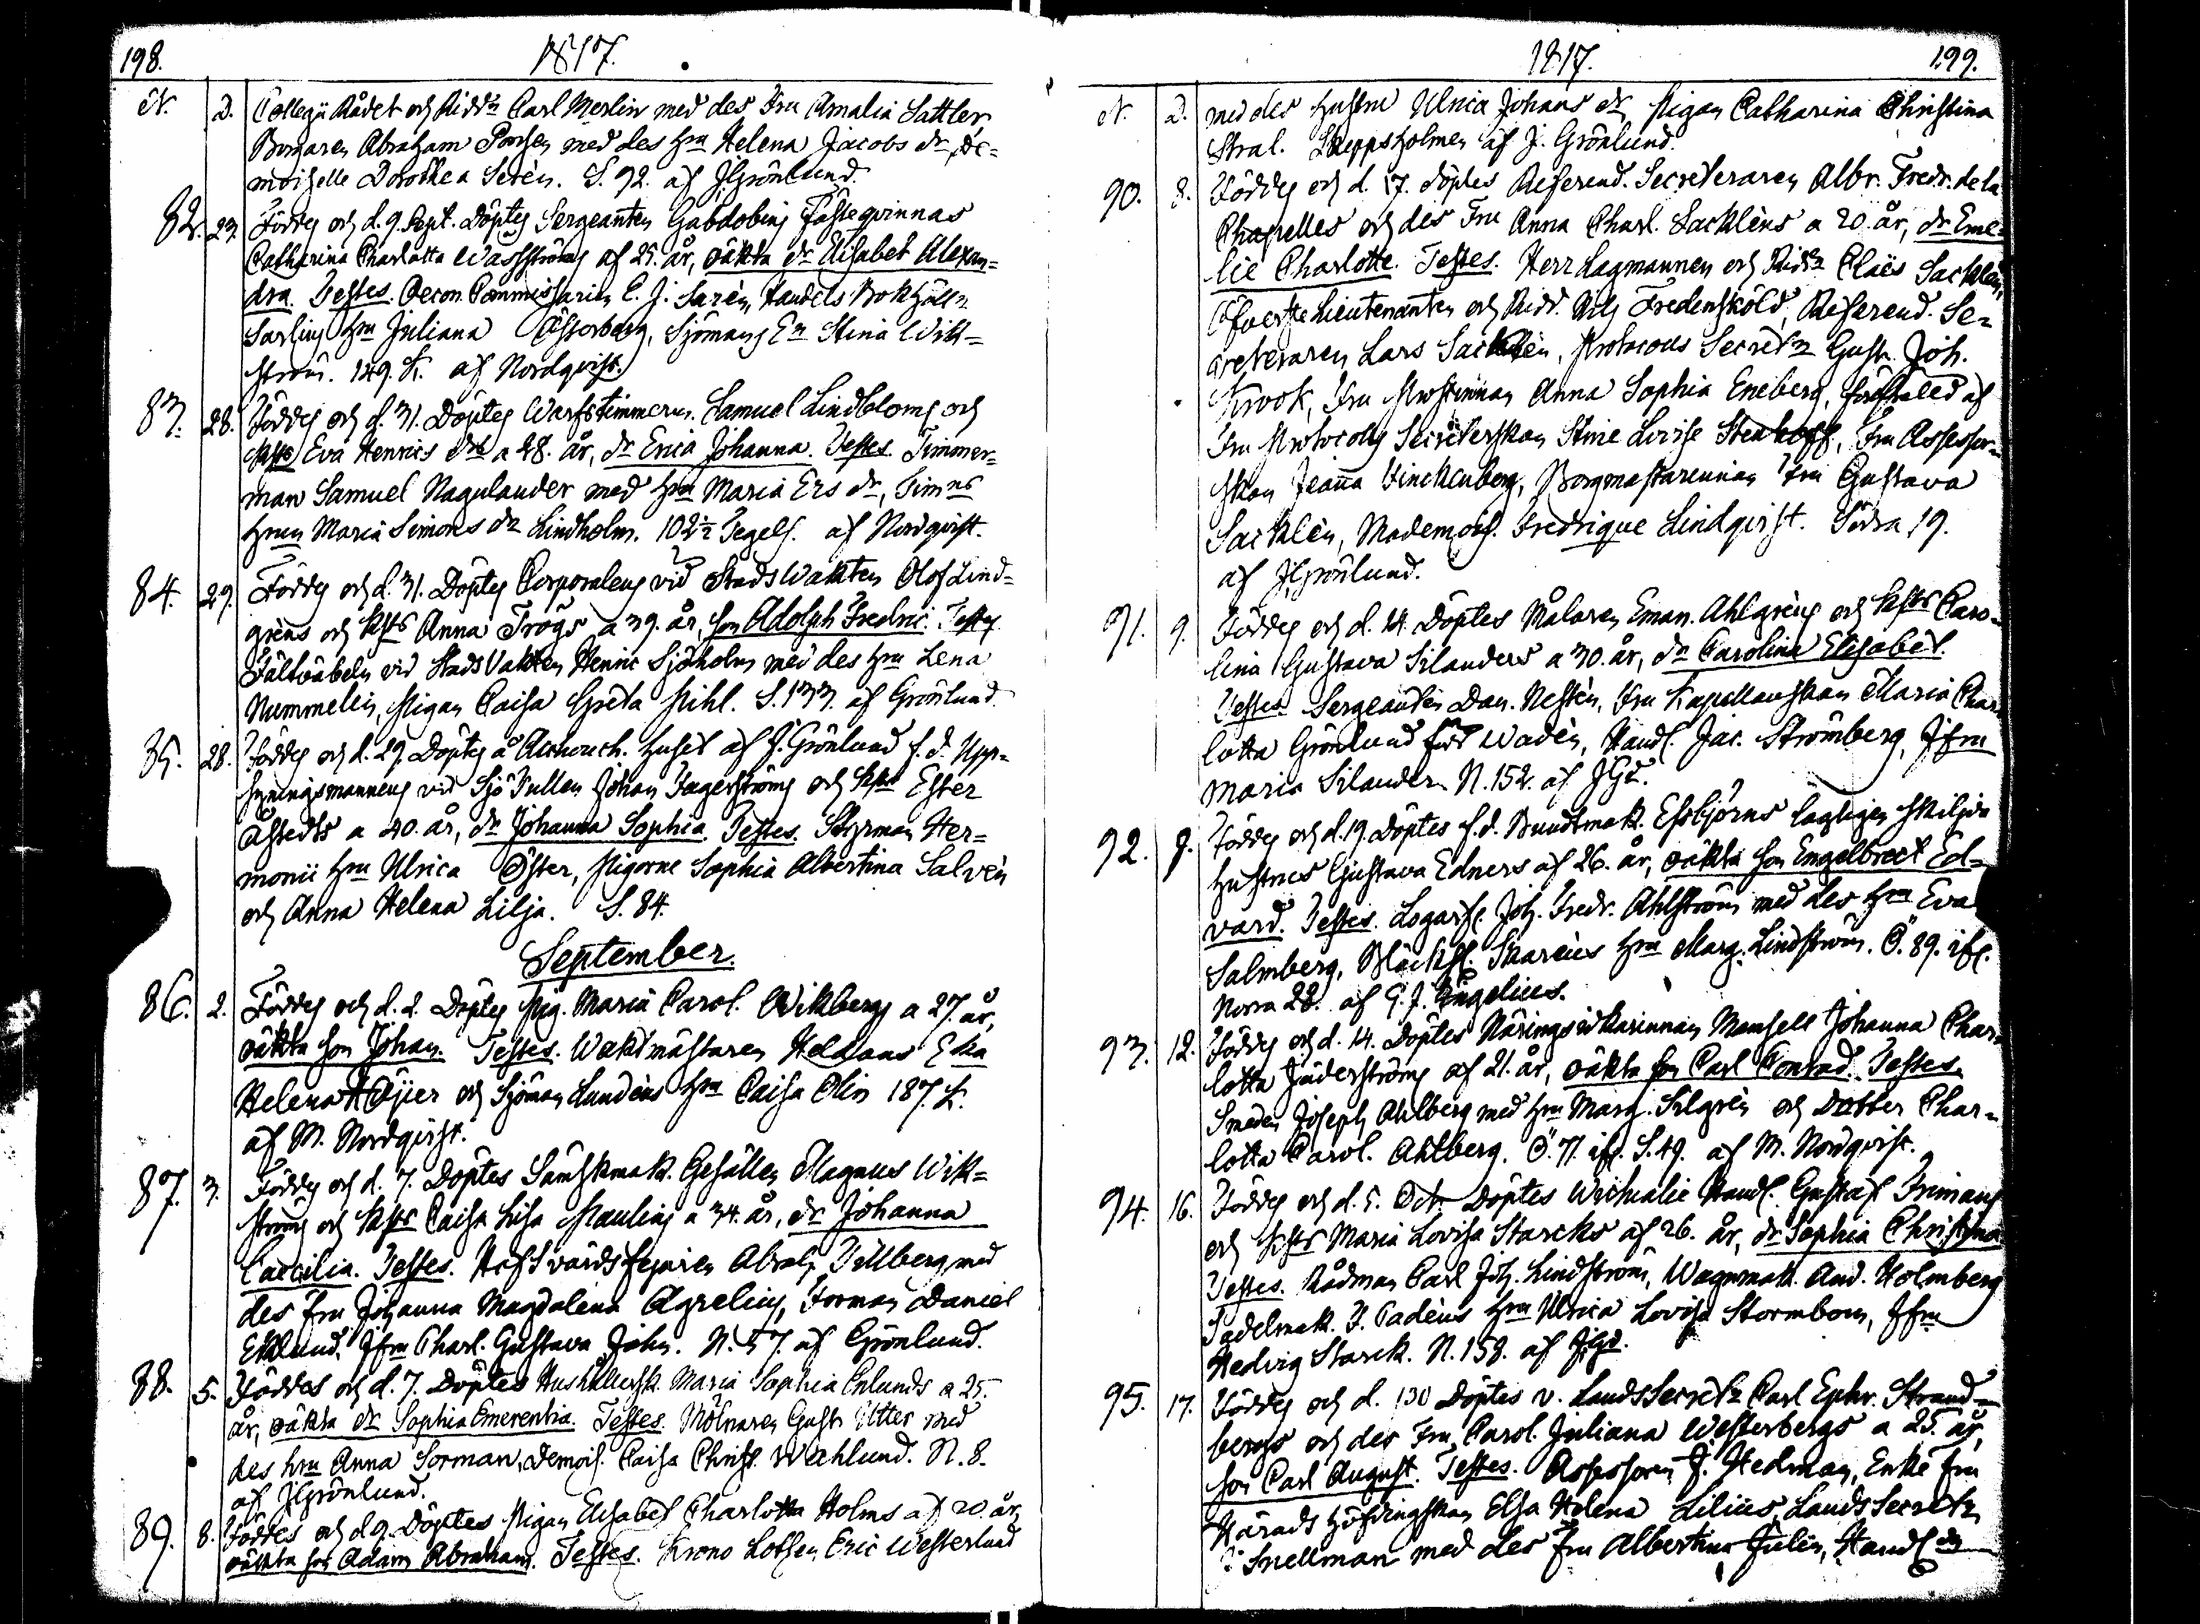 198. 1817.
N. D. Collegii Rådet och Riddn Carl Merlin med des Fru Amalia Sattler,
Borgaren Abraham Porsen med des Hru Helena Jacobs dr, de=
moiselle Dorothea Serèn. S. 92. af J Grönlund.
82. 23. Föddes och d. 9. Sept. Döptes Sergeanten Fästeqvinnas
Catharina Charlotta af 25. år, oäkta dr Elisabet Alexan=
dra. Testes. Oecon. Commissarien C. J. Sarèn, Handels Bokhåll
Sarlins Hru Juliana Österberg, Sjömans En Stina Wik=
ström. 149. K. af Nordqvist.
83. 28. Föddes och d. 31. Döptes Warfstimmerm. Samuel Lindbloms och
Hrus Eva Henrics drs a 28. år, dr Erica Johanna. Testes. Timmer=
man Samuel Nagulander med Hru Maria Ers dr, Timms
Hrun Maria Simons dr Lindholm. 102½ Tegels. af Nordqvist.
84. 29. Föddes och d. 31. Döptes Corporalens vid Stads Wakten Olof Lind=
grèns och Hrus Anna Trögs a 39. år, son Adolph Fredric. Testes
Fältväbeln vid Stads Vakten Henric Sjöholm med des Hru Lena
Nummelin, Pigan Caisa Greta Pihl. S. 133. af Grönlund.
35. 28. Föddes och d. 29. Döptes å Accouch. Huset af J. Grönlund f. d. Upp=
syningsmannens vid Sjö Tullen Johan Fagerströms och Hrus Ester
Åstedts a 40. år, dr Johanna Sophia. Testes. Styrman Her=
monii Hru Ulrica Öster, Pigorne Sophia Albertina Salvèn
och Anna Helena Lilja. S. 84.
September.
86. 2. Föddes och d. 2. Döptes Pig. Maria Carol. Wikbergs a 27. år,
oäkta son Johan. Testes. Waktmästaren Enka
Helena Höijer och Sjöman Lundèns Hru Caisa Olin 187. K.
af M. Nordqvist.
87. 3. Föddes och d. 7. Döptes Sämskmak. Gesällen Magnus Wik=
ströms och Hrus Caisa Lisa Paulins a 34. år, dr Johanna
Caecilia. Testes. Hofsvärdsfejaren Abrah. Tillberg med
des Fru Johanna Magdalena Agrelius, Forman Daniel
Eklund, Jfru Charl. Gustava John. N. 57. af Grönlund.
88. 5. Föddes och d. 7. Döptes Hushållersk. Maria Sophia Enlunds a 25.
år, oäkta dr Sophia Emerentia. Testes. Mölnaren Gust. Utter med
des Hru Anna Forman, Demois. Caisa Christ. Wahlund. N. 8.
af J Grönlund.
89. 8. Föddes och d. 9. Döptes Pigan Elisabet Charlotta Holms af 20 år,
oäkta son Adam Abraham. Testes. Krono Lotsen Eric Westerlund
1817. 199.
N. D. med des Hustru Ulrica Johans dr, Pigan Catharina Christina
Stral. Skeppsholmen af J. Grönlund.
90. 8. Föddes och d. 17. döptes Referend. Secreteraren Albr. Fredr. de la
Chapelles och des Fru Anna Charl. Sacklèns a 20. år, dr Eme=
lie Charlotte. Testes. Herr Lagmannen och Riddn Claës Sacklèn,
Öfverste Lieutenanten och Ridd. Nils Fredensköld, Referend. Se=
creteraren Lars Sacklèn, Protocolls Secretn Gust. Joh.
Krook, Fru Prostinnan Anna Sophia Eneberg, af
Fru Protocolls Secreterskan Stine Lovise, Fru Assessor=
skan Jeanna Finckenberg, Borgmästarinnan Fru Gustava
Sacklèn, Mademois. Fredrique Lindqvist. Södra 19.
af J Grönlund.
91. 9. Föddes och d. 14. Döptes Målaren Eman. Ahlgrèns och Hrus Caro=
lina Gustava Silanders a 30. år, dr Carolina Elisabet.
Testes. Sergeanten Dan. Nestèn, Fru Kapellanskan Maria Char=
lotta Grönlund född Wadèn, Handl. Jac. Strömberg, Jfru
Maria Silander. N. 152. af JGd.
92. 9. Föddes och d. 19. Döptes f. d. Buntmak. Essbjörns lagligen skiljda
Hustrus Gustava Edners af 26. år, oäkta son Engelbrect Ed=
vard. Testes. Logarfl. Joh. Fredr. Ahlström med des Hru Eva
Salmberg, Bläcksl. Skareus Hru Marg. Lindström. Ö. 89. ifl.
Norra 28. af G. J.
93. 12. Föddes och d. 14. Döptes Näringsidkarinnan Mamsell Johanna Char=
lotta Jäderströms af 21. år, oäkta son Carl Conrad. Testes.
Smeden Joseph Ahlberg med Hru Marg. Silgrèn och Dotter Char=
lotta Carol. Ahlberg. Ö. 71. ifl. S. 49. af M. Nordqvist.
94. 16. Föddes och d. 5. Octr Döptes Victualie Handl. Gustaf Frimans
och Hrus Maria Lovisa Starcks af 26. år, dr Sophia Christina
Testes. Rådman Carl Joh. Lindström, Wagnmak. And. Holmberg
Sadelmak. J. Cadèns Hru Ulrica Lovisa Stormbom, Jfru
Hedvig Starck. N. 158. af JGd.
95. 17. Föddes och d. 30 Döptes v. LandsSecretn Carl Ephr. Strand=
bergs och des Fru Carol. Juliana Westerbergs a 25. år,
son Carl August. Testes. Assessoren J. Hedman, Enke Fru
Härads Höfdingskan Elsa Helena Lilius, LandsSecretn
J. Snellman med des Fru Albertina Julin, Handl